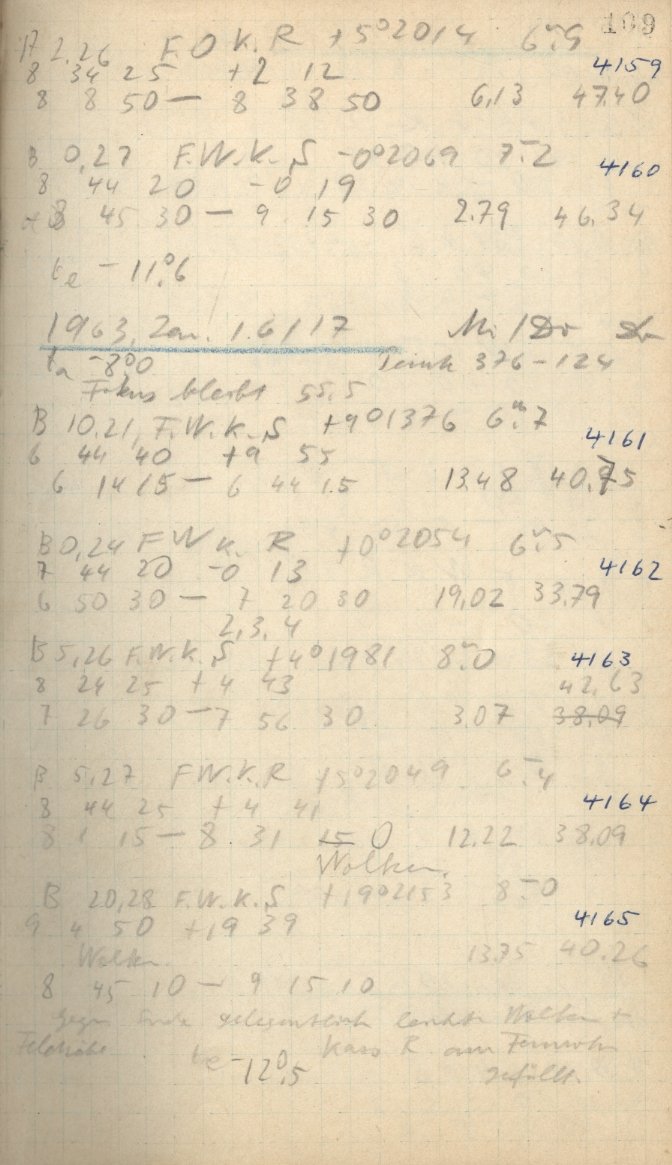 109
B 2,26 F.O K.R +5°2014 6ᵐ.9
8 34 25 +2 12 4159
8 8 50 — 8 38 50 6,13 47.40
B 0,27 F.W.K.S -0°2069 7ᵐ.2
8 44 20 -0 19 4160
8 45 30 — 9 15 30 2.79 46,34
te -11°.6
1963, Jan. 16/17 Mi/Dr
ta -8°.0 376-124
Fokus bleibt 55,5
B 10,21, F.W.K.S +9°1376 6ᵐ.7
6 44 40 +9 55 4161
6 14 15 — 6 44 15 13,48 40,75
B 0,24 F W K. R +0°2054 6ᵐ.5
7 44 20 -0 13 4162
6 50 30 — 7 20 30 19,02 33,79
2,3,4
B 5,26 F.W.K.S +4°1981 8ᵐ.0 4163
8 24 25 +4 43 42,63
7 26 30 — 7 56 30 3,07 38,09
B 5,27 F.W.K.R +5°2049 6ᵐ.4
8 44 25 +4 41 4164
8 1 15 — 8 31 15 0 12,22 38,09
Wolken.
B 20,28 F.W.K.S +19°2153 8ᵐ.0
9 4 50 +19 39 4165
Wolken 13,75 40,26
8 45 10 — 9 15 10
gegen Ende gelegentlich leichte Wolken +
te -12°.5 Kass R am Fernrohr
gefüllt.